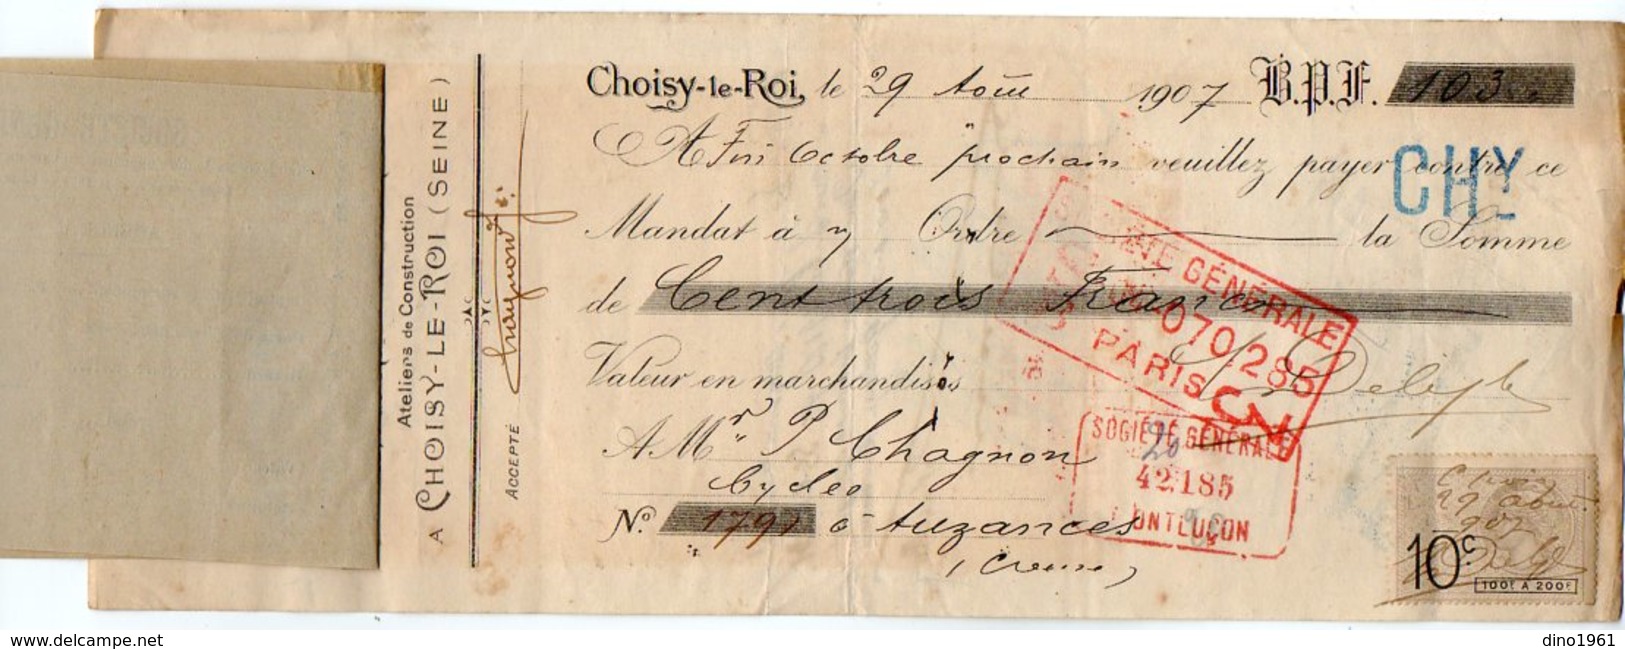 Ateliers de Construction
A CHOISY-LE-ROI (SEINE)
ACCEPTÉ
Choisy-le-Roi, le 29 Août 1907 B.P.F. 103
A Fin Octobre prochain veuillez payer contre ce
CHY
Mandat à m Ordre la Somme
de Cent trois Francs
Valeur en marchandises
SOCIÉTÉ GÉNÉRALE
070 285
PARIS
A Mr P Chagnon
Cycles
No. 1791 à Auzances
(Creuse)
SOCIÉTÉ GÉNÉRALE
42.185
MONTLUÇON
Choisy
29 août
907
10c
100F A 200F
www.delcampe.net
dino1961